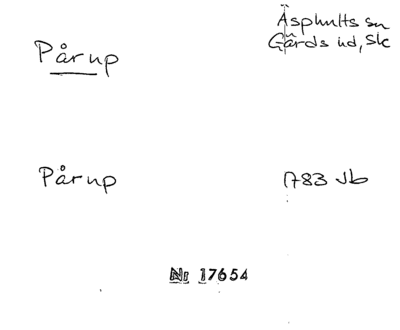 Pårup
Äsphults sn
Gärds hd, Sk
Pårup
1783 Jb
Nr 17654